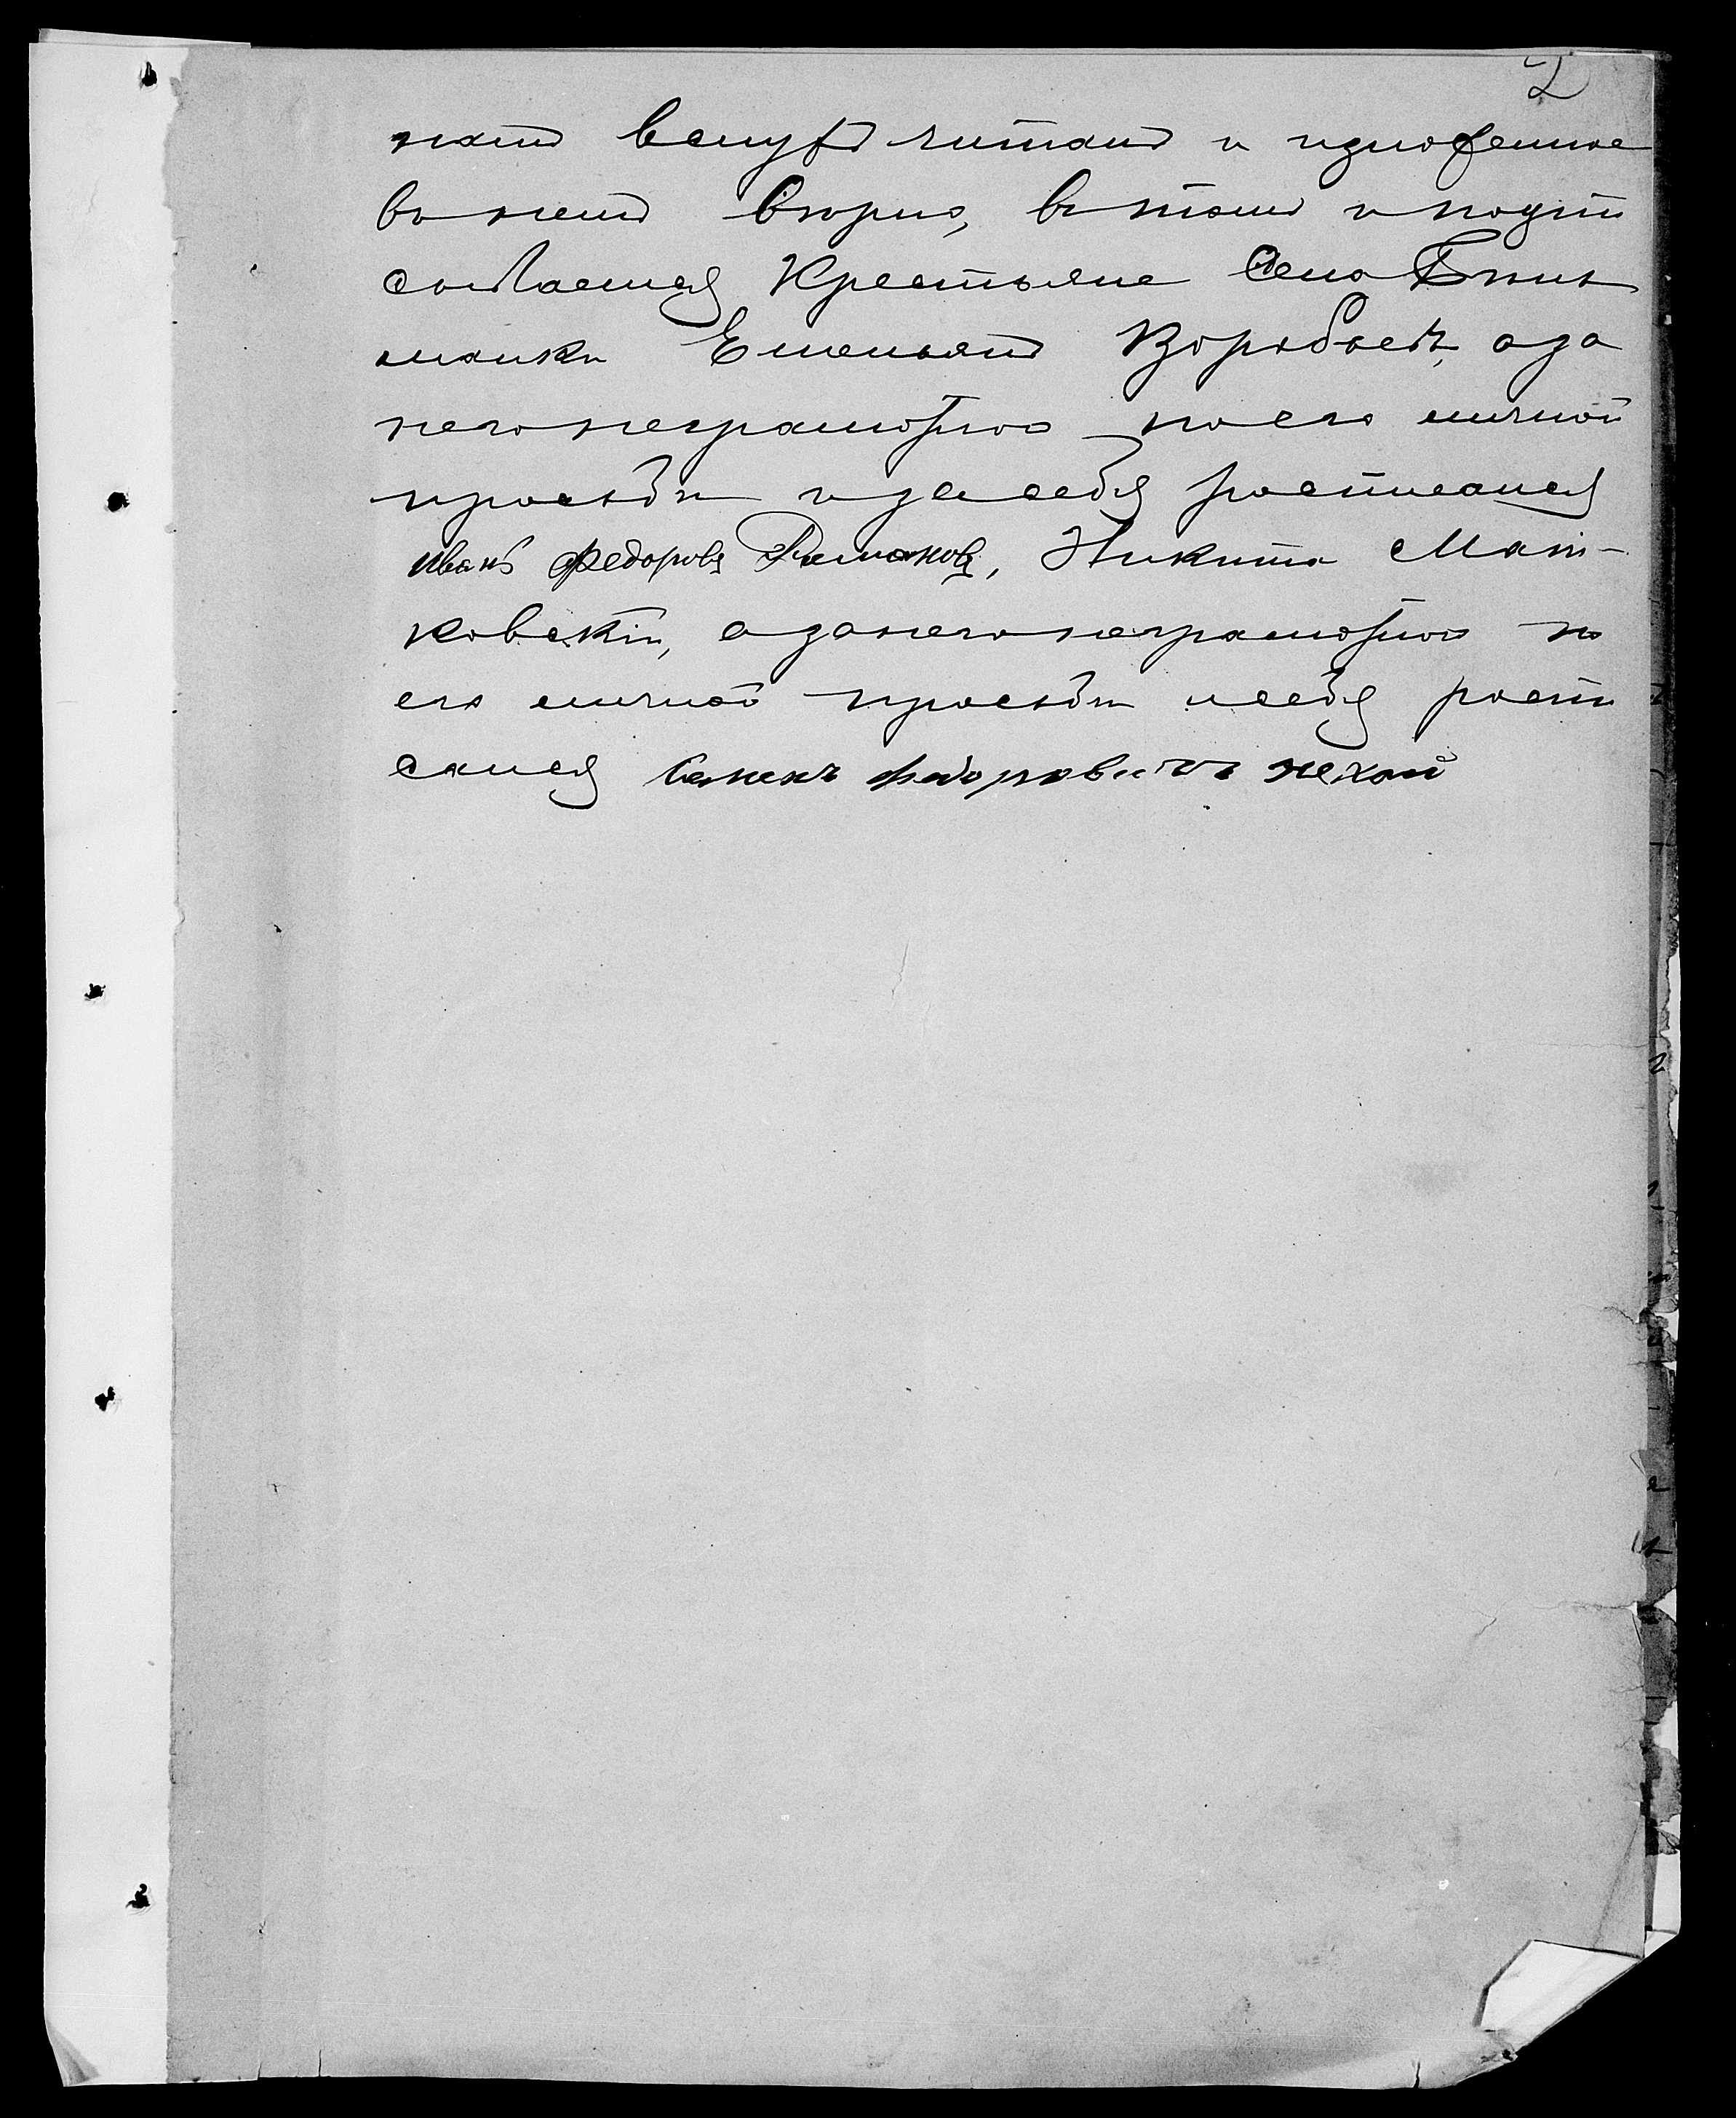 2
намъ вслухъ читанъ и изложенное
во немъ верно, в томъ и подпи
соваемся Крестьяне Села
Емельянъ Воробьевъ, а за
него неграмотнаго по его личной
просьбе и за себя росписался
Иванъ Федоровъ Романовъ, Никита Мать-
ковскій, а за него неграмотнаго по
его личной просьбе и себя роспи
сался Семенъ Федоровичъ Нехай